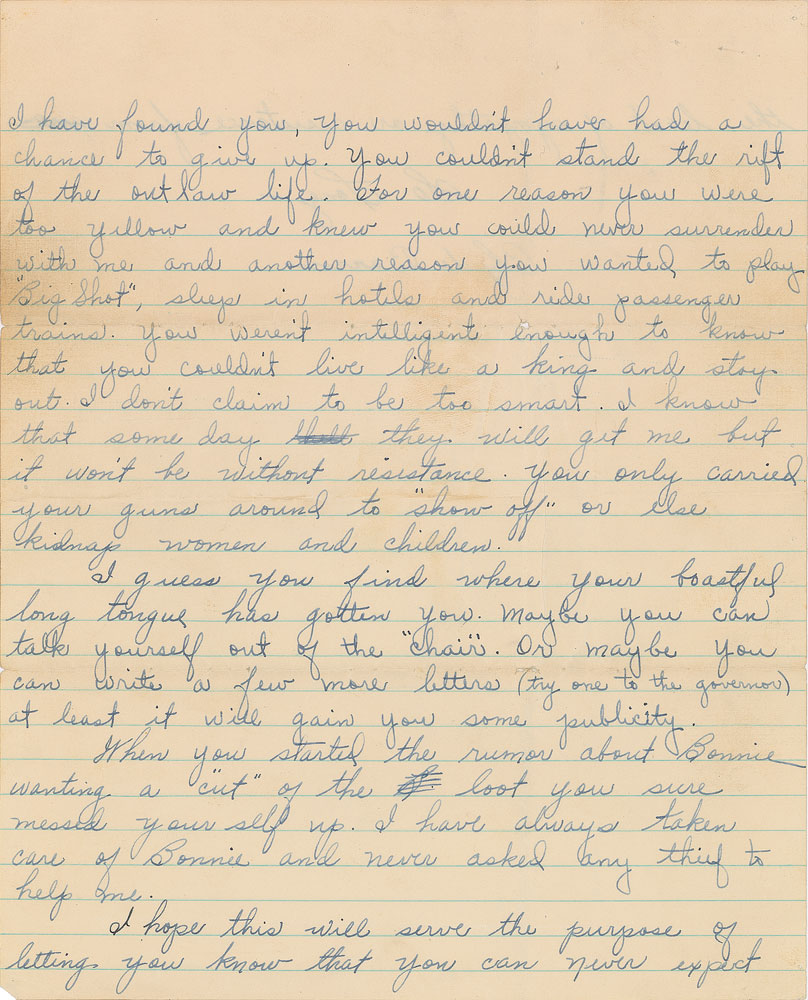 I have found you, you wouldn't have had a
chance to give up. You couldn't stand the rift
of the outlaw life. For one reason you were
too yellow and knew you could never surrender
with me and another reason you wanted to play
"Big Shot", sleep in hotels and ride passenger
trains. You weren't intelligent enough to know
that you couldn't live like a king and stay
out. I don't claim to be too smart. I know
that some day they will get me but
it won't be without resistance. You only carried
your guns around to "show off" or else
kidnap women and children.
I guess you find where your boastful
long tongue has gotten you. Maybe you can
talk yourself out of the "chair". Or maybe you
can write a few more letters (try one to the governor)
at least it will gain you some publicity.
When you started the rumor about Bonnie
wanting a "cut" of the loot you sure
messed your self up. I have always taken
care of Bonnie and never asked any thief to
help me.
I hope this will serve the purpose of
letting you know that you can never expect